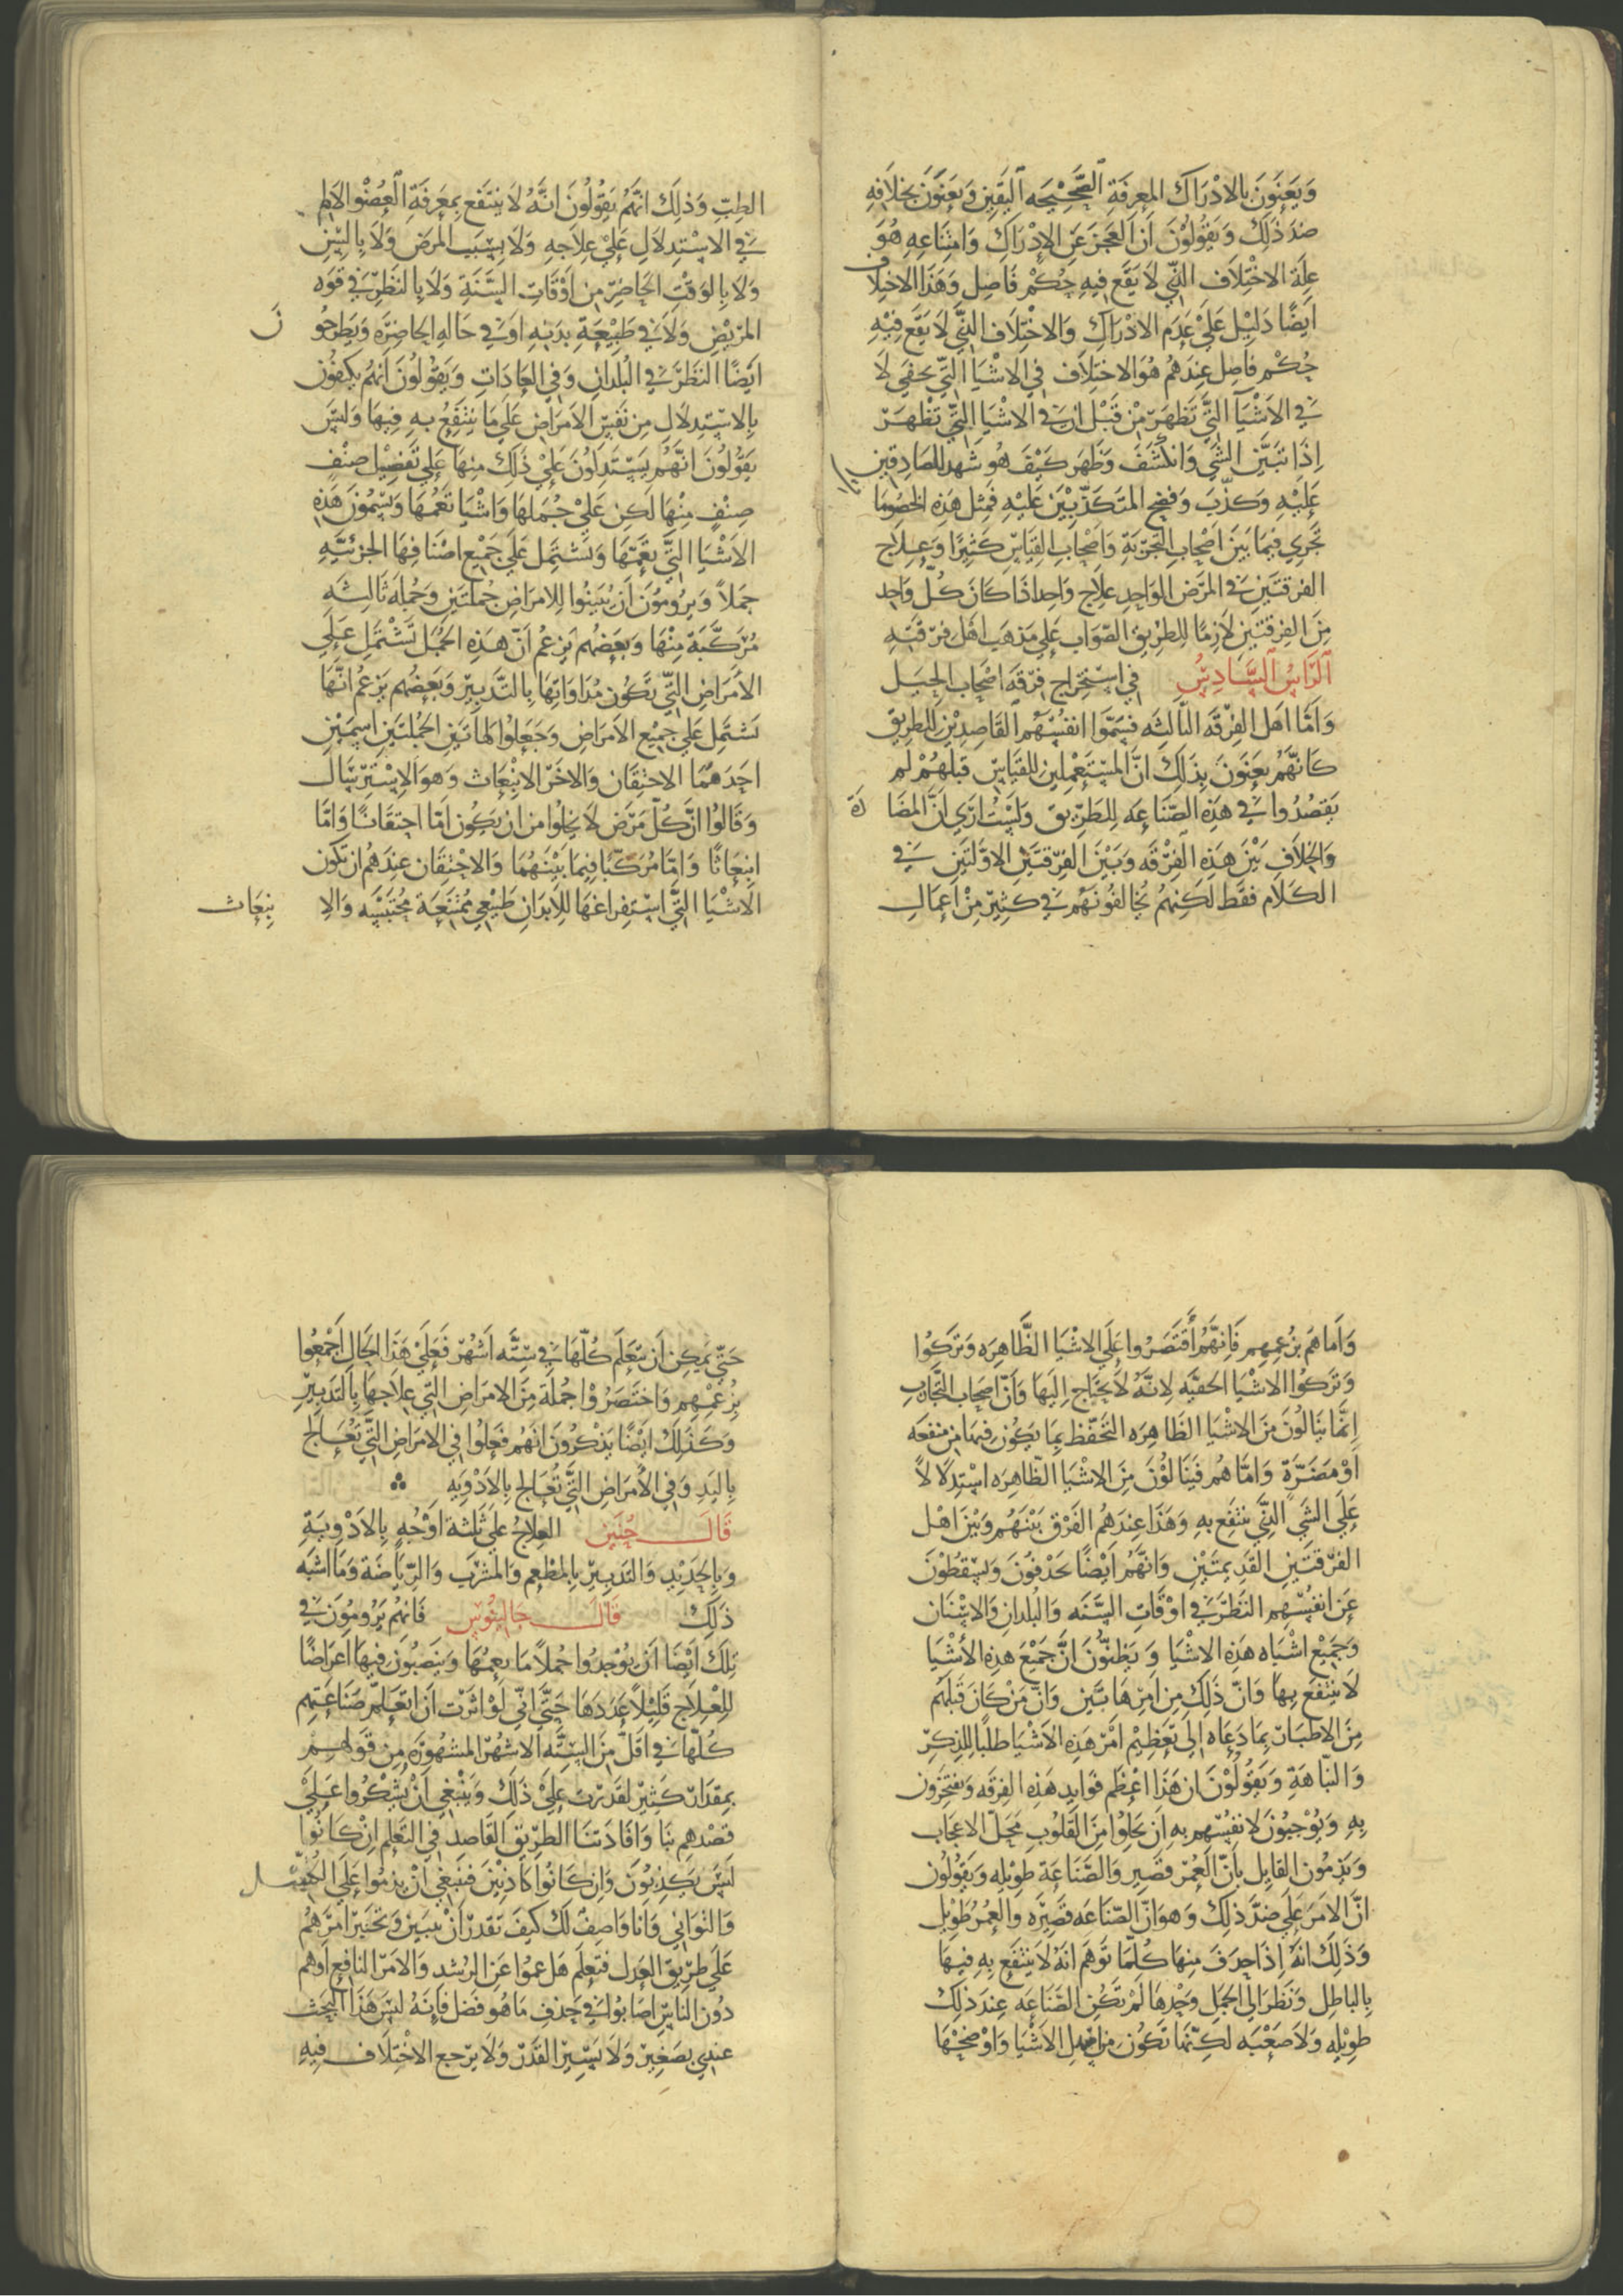 ويعنون بالادراك المعرفة الصحيحه اليقين ويعنون بخلافه
ضد ذلك ويقولون ان العجز عن الادراك وامتناعه هو
علة الاختلاف الذي لا يقع فيه حكم فاصل وهذا الاختلاف
ايضًا دليل علي عدم الادراك والاختلاف الذي لا يقع فيه
حكم فاصل عندهم هو الاختلاف في الاشيا التي تخفي لا
في الاشيا التي تظهر من قبل ان في الاشيا التي تظهر
اذا تبين الشي وانكشف وظهر كيف هو شهد للصادقين
عليه وكذب وفضح المتكذبين عليه فمثل هذه الخصوما
تجري فيما بين اصحاب التجربة واصحاب القياس كثيرًا وعلاج
الفرقتين في المرض الواحد علاج واحد اذا كان كل واحد
من الفرقتين لازمًا للطريق الصواب علي مذهب اهل فرقته
الراس السادس في استخراج فرقه اصحاب الحيل
واما اهل الفرقه الثالثه فيسموا انفسهم القاصدين للطريق
كانهم يعنون بذلك ان المستعملين للقياس قبلهم لم
يقصدوا في هذه الصناعه للطريق ولست اري ان المضادة
والخلاف بين هذه الفرقه وبين الفرقتين الاولتين في
الكلام فقط لكنهم يخالفونهم في كثير من اعمال
الطب وذلك انهم يقولون انه لا ينتفع بمعرفة العضو الالم
في الاستدلال علي علاجه ولا بسبب المرض ولا بالسن
ولا بالوقت الحاضر من اوقات السنة ولا بالنظر في قوه
المريض ولا في طبيعة بدنه او في حاله الحاضره ويطرحون
ايضًا النظر في البلدان وفي العادات ويقولون انهم يكتفون
بالاستدلال من نفس الامراض علي ما ينتفع به فيها وليس
يقولون انهم يستدلون علي ذلك منها علي تفصيل صنف
صنف منها لكن علي جملها واشيا تعمها ويسمون هذه
الاشيا التي تعمها وتشتمل علي جميع اصنافها الجزئيه
جملاً ويرومون ان يبينوا للامراض جملتين وجملة ثالثه
مركبة منها وبعضهم يزعم ان هذه الجمل تشتمل علي
الامراض التي تكون مداواتها بالتدبير وبعضهم يزعم انها
تشتمل علي جميع الامراض وجعلوا لهاتين الجملتين اسمين
احدهما الاحتقان والاخر الانبعاث وهو الاسترسال
وقالوا ان كل مرض لا يخلوا من ان يكون اما احتقانًا واما
انبعاثًا واما مركبًا فيما بينهما والاحتقان عندهم ان تكون
الاشيا التي استفراغها للابدان طبيعي ممتنعة محتبسه والانبعاث
واما هم بزعمهم فانهم اقتصروا علي الاشيا الظاهره وتركوا
وتركوا الاشيا الخفيه لانه لا يحتاج اليها وان اصحاب التجارب
انما ينالون من الاشيا الظاهره التحفظ بما يكون فيها من منفعه
او مضرة واما هم فينالون من الاشيا الظاهره استدلالاً
علي الشي الذي ينتفع به وهذا عندهم الفرق بينهم وبين اهل
الفرقتين القديمتين وانهم ايضًا يحذفون ويسقطون
عن انفسهم النظر في اوقات السنه والبلدان والاسنان
وجميع اشباه هذه الاشيا ويظنون ان جميع هذه الأشيا
لا ينتفع بها وان ذلك من امرها بين وان من كان قبلهم
من الاطبا انما دعاه الي تعظيم امر هذه الاشيا طلبًا للذكر
والنباهة ويقولون ان هذا اعظم فوايد هذه الفرقه ويفتخرون
به ويوجبون لانفسهم به ان يحلوا من القلوب محل الاعجاب
ويذمون القايل بان العمر قصير والصناعة طويله ويقولون
ان الامر علي ضد ذلك وهو ان الصناعه قصيره والعمر طويل
وذلك انه اذا حذف منها كلما توهم انه لا ينتفع به فيها
بالباطل ونظر الي الجمل وحدها لم تكن الصناعه عند ذلك
طويله ولا صعبه لكنها تكون من اسهل الاشيا واوضحها
حتي يمكن ان يتعلم كلها في سته اشهر فعلي هذا الحال اجمعوا
بزعمهم واختصروا جملة من الامراض التي علاجها بالتدبير
وكذلك ايضًا يذكرون انهم فعلوا في الامراض التي تعالج
باليد وفي الامراض التي تعالج بالادويه
قال حنين العلاج علي ثلثة اوجه بالادوية
وبالحديد والتدبير بالمطعم والمشرب والرياضة وما اشبه
ذلك قال جالينوس فانهم يرومون في
تلك ايضا ان يوجدوا جملاً ما يعمها وينصبون فيها اعراضًا
للعلاج قليلاً عددها حتي اني لو اثرت ان اتعلم صناعتهم
كلها في اقل من السته الاشهر المشهوره من قولهم
بمقدار كثير لقدرت علي ذلك وينبغي ان يشكروا علي
قصدهم بنا وافادتنا الطريق القاصد في التعلم ان كانوا
ليس يكذبون وان كانوا كاذبين فينبغي ان يذموا علي الكسل
والتواني وانا واصف لك كيف تقدر ان تبين وتختبر امرهم
علي طريق العدل فتعلم هل عموا عن الرشد والامر النافع او هم
دون الناس اصابوا في حذف ما هو فضل فانه ليس هذا البحث
عندي بصغير ولا يسير القدر ولا يرجع الاختلاف فيه